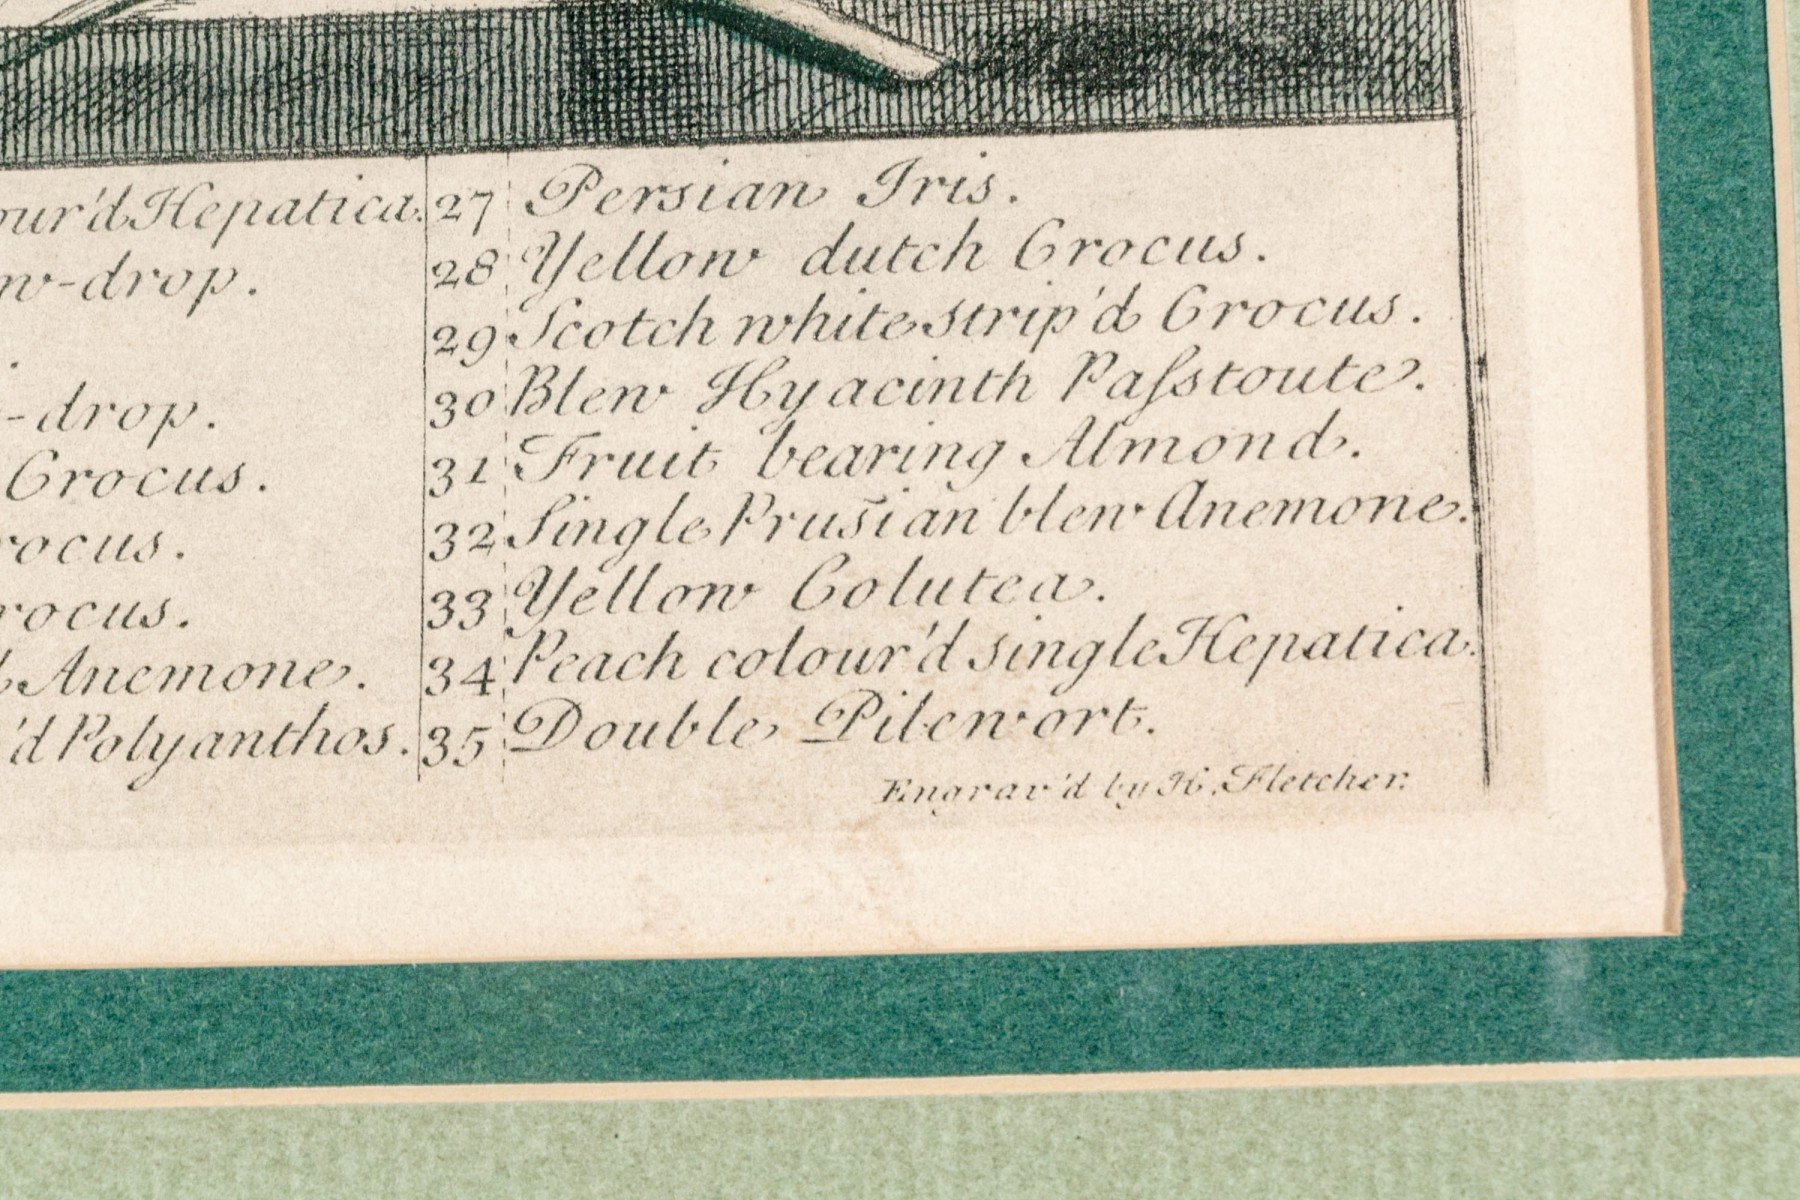 our'd Hepatica.
w-drop.
.
-drop.
Crocus.
rocus.
rocus.
d Anemone.
'd Polyanthos.
27 Persian Iris.
28 Yellow dutch Crocus.
29 Scotch white strip'd Crocus.
30 Blew Hyacinth Paſstoute.
31 Fruit bearing Almond.
32 Single Prusian blew Anemone.
33 Yellow Colutea.
34 Peach colour'd single Hepatica.
35 Double Pilewort.
Engrav'd by H. Fletcher.